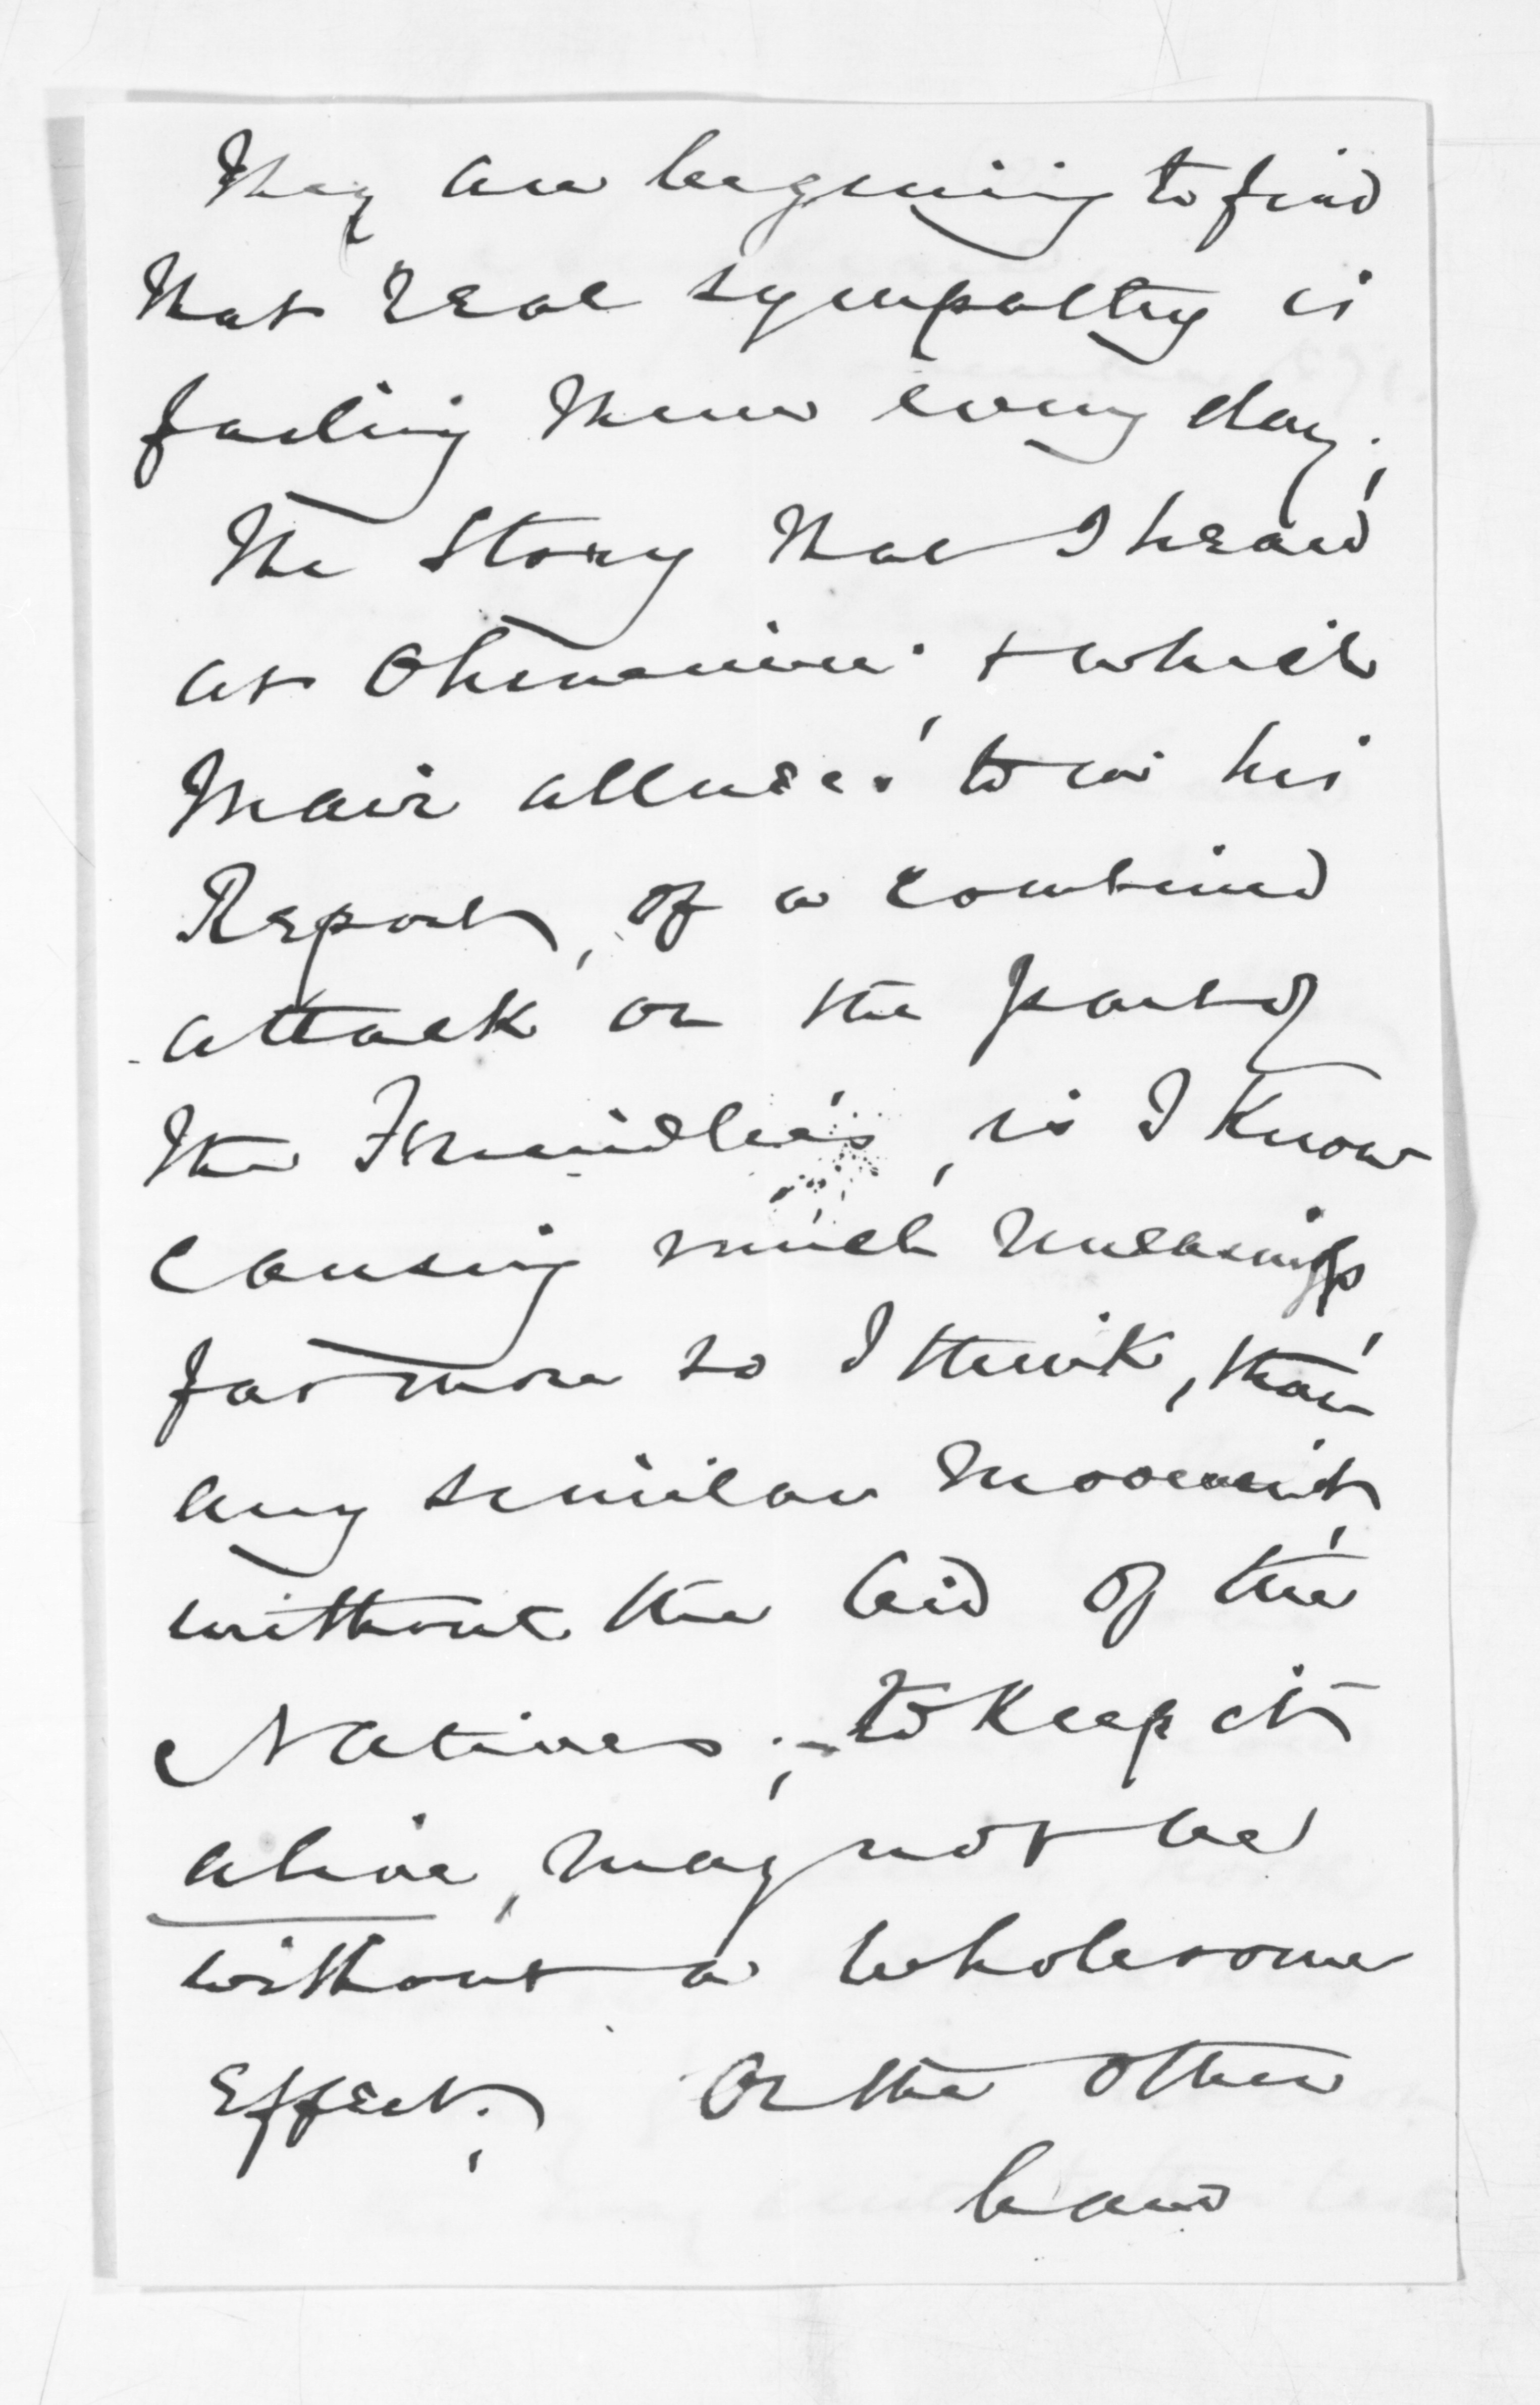 They are begining to find
that real sympathy is
failing them every day;
The Story that I heard
at Ohinemuri, & which
Mair alludes to in his
Report, of a combined
attack on the part of
the Friendlies, is I Know
causing much uneasiness,
far more so I think, than
any similar movement,
without the aid of the
Natives; - to Keep it
alive, may not be
without a wholesome
Effect; On the other
hand